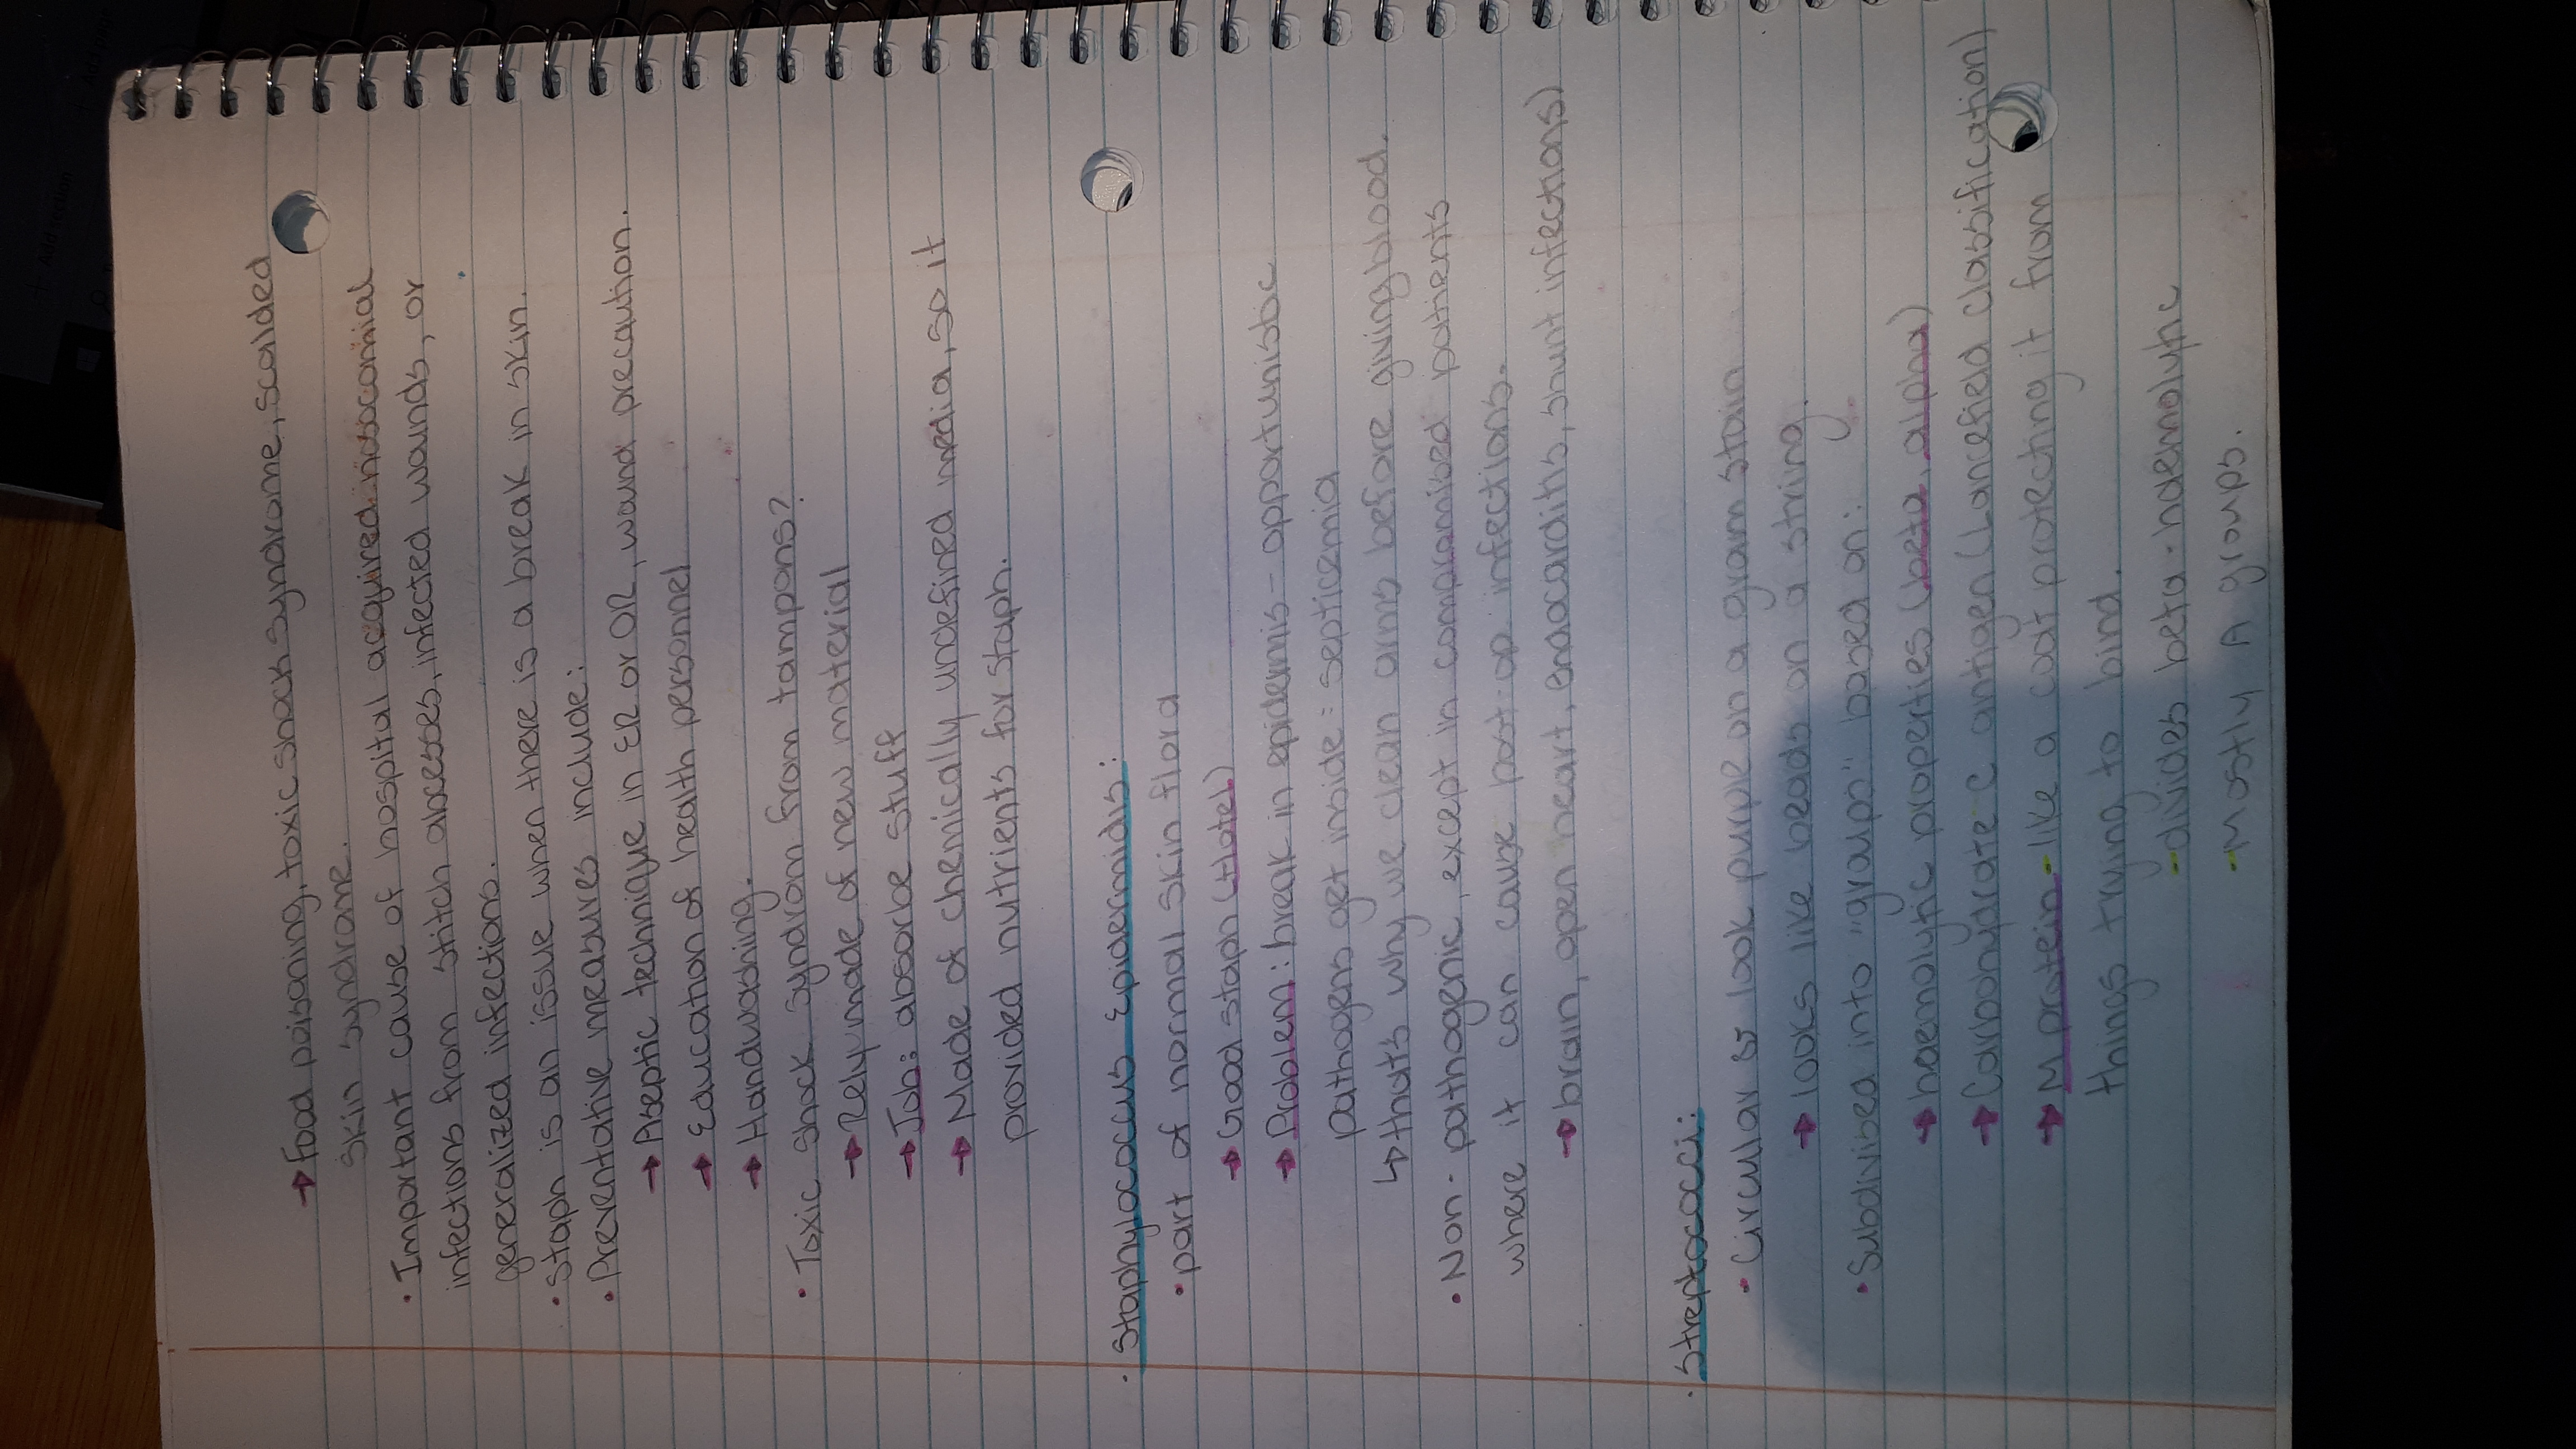 → Food poisoning, toxic shock syndrome, scalded
skin syndrome.
• Important cause of hospital acquired nosocomial
infections from stitch abcesses, infected wounds, or
generalized infections.
• Staph is an issue when there is a break in skin.
• Preventative measures include:
→ Aseptic technique in ER or OR, wound precaution.
→ Education of health personnel
→ Handwashing.
• Toxic Shock Syndrom from tampons?
→ Rely: made of new material
→ Job: absorbe stuff
→ Made of chemically undefined media, so it
provided nutrients for staph.
• Staphylococcus Epidermidis:
• part of normal skin flora
→ Good staph
→ Problem: break in epidermis - opportunistic
pathogens get inside = septicemia
↳ that's why we clean arms before giving blood.
• Non-pathogenic, except in compromised patients
where it can cause post-op infections.
→ brain, open heart, endocarditis, shunt infections)
• Streptococci:
• Circular & look purple on a gram stain
→ looks like beads on a string.
• Subdivised into "groups" based on:
→ haemolytic properties (beta, alpha)
→ Carbohydrate C antigen (Lancefield classification)
→ M protein - like a coat protecting it from
things trying to bind.
- divides beta-haemolytic
- Mostly A groups.